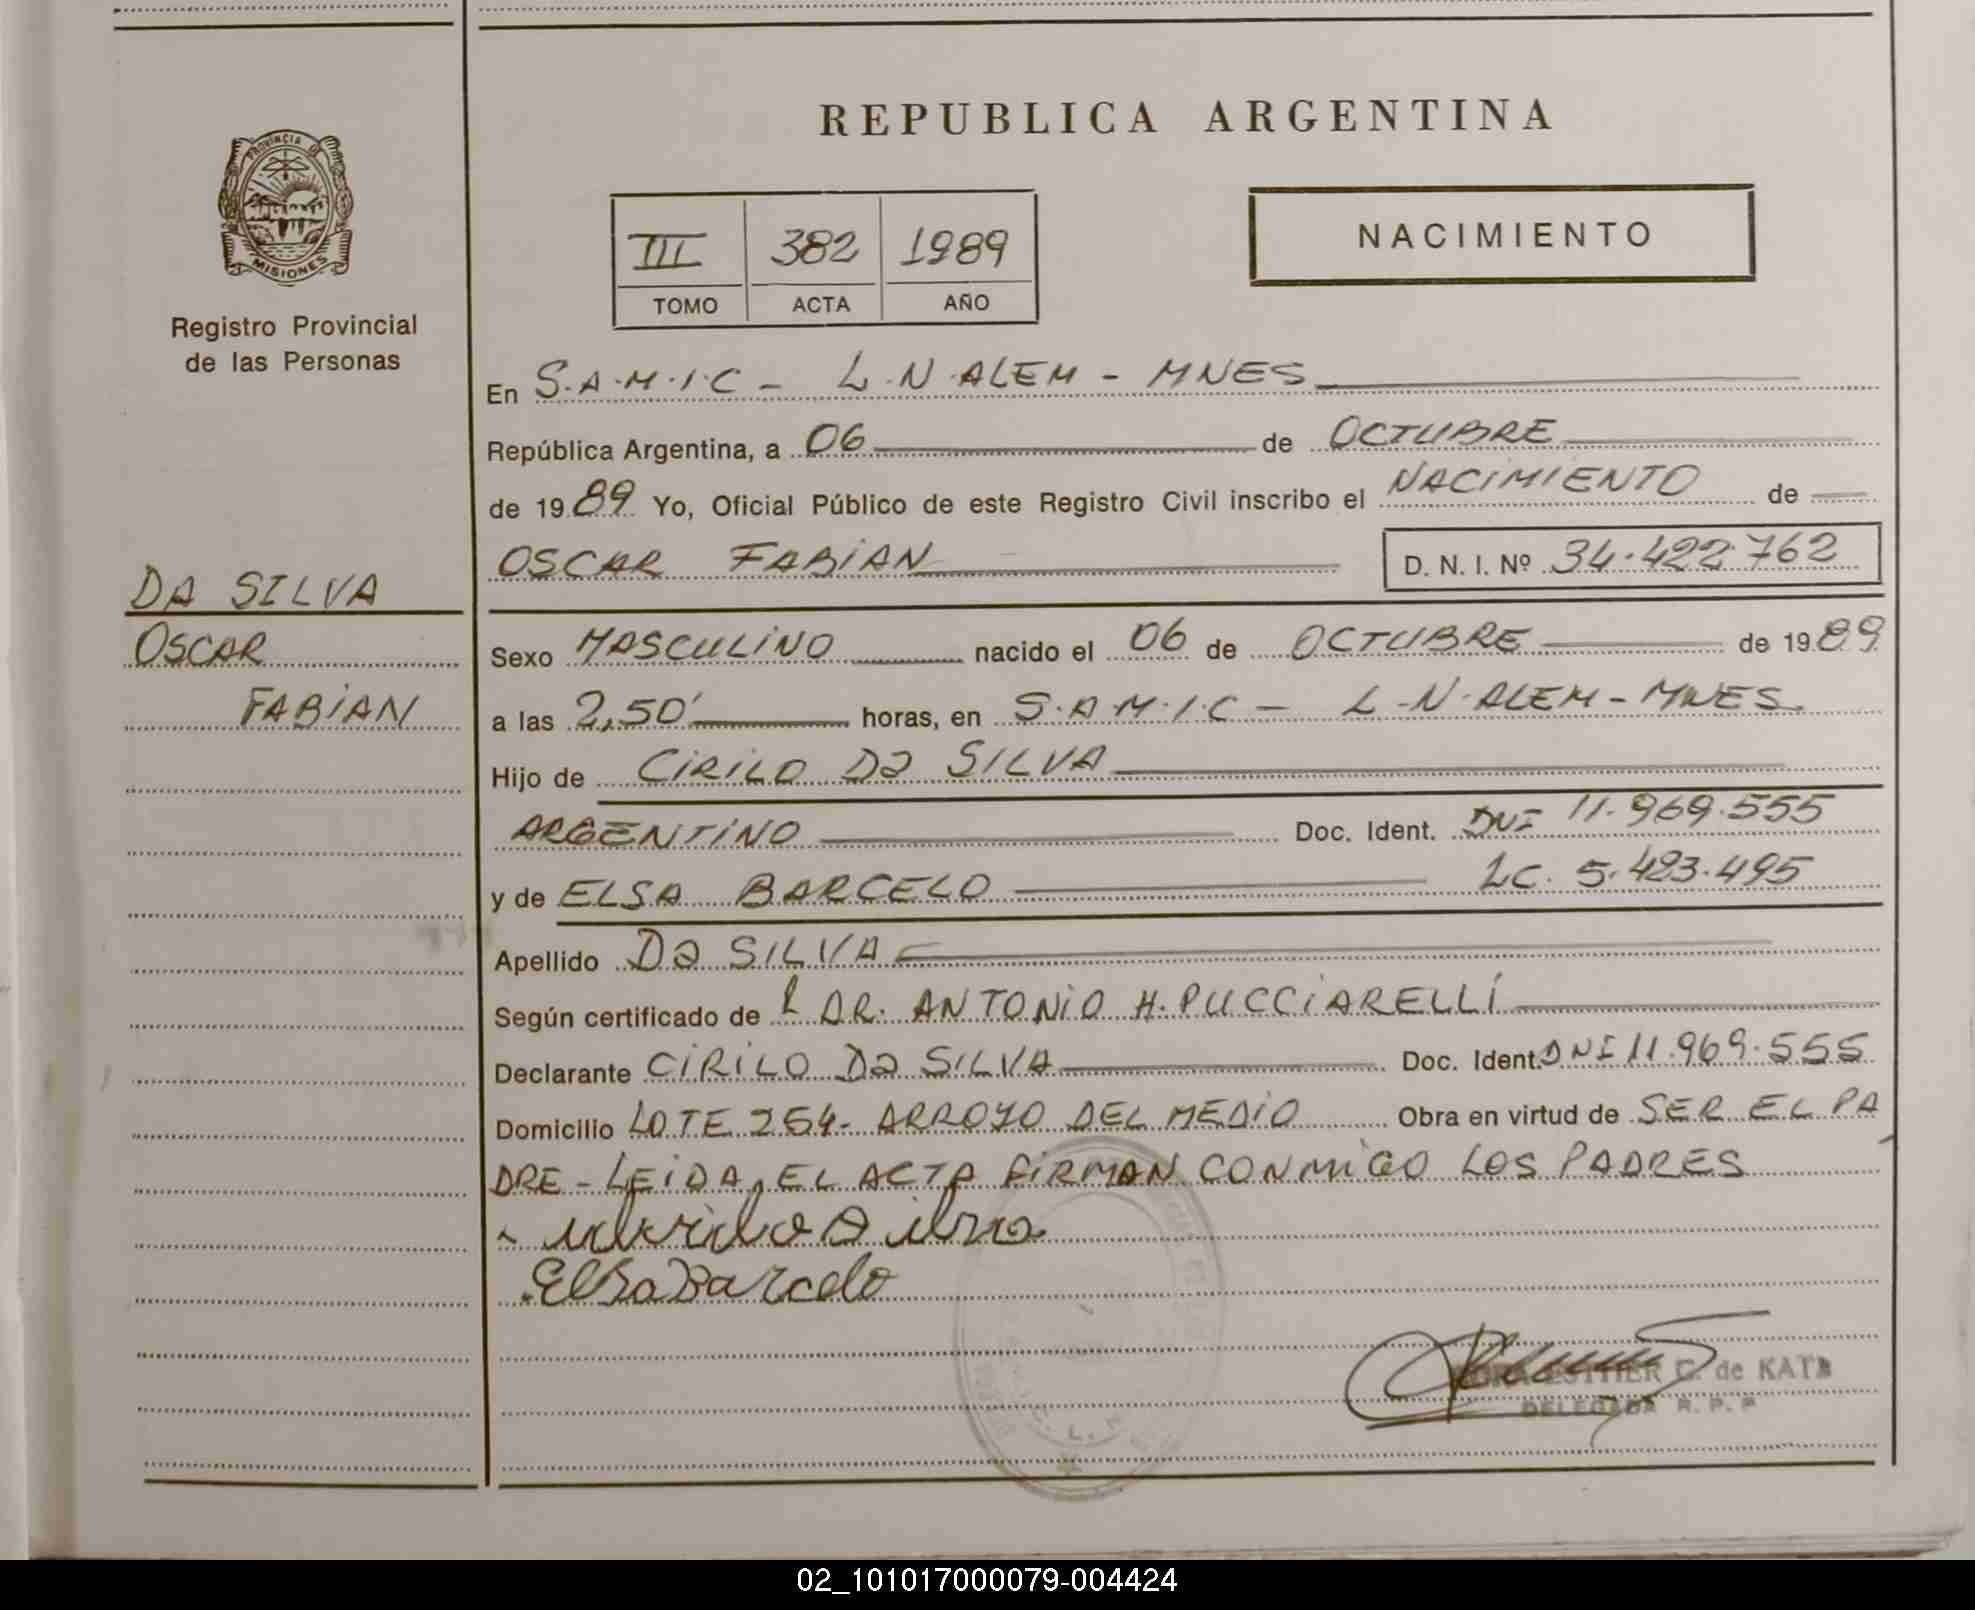 REPUBLICA ARGENTINA
PROVINCIA DE
MISIONES
Registro Provincial
de las Personas
III 382 1989
TOMO ACTA AÑO
NACIMIENTO
En S.A.M.I.C - L.N.ALEM - MNES
República Argentina, a 06 de OCTUBRE
de 1989 Yo, Oficial Público de este Registro Civil inscribo el NACIMIENTO de
OSCAR FABIAN D. N. I. Nº 34.422.762
DA SILVA
OSCAR
FABIAN
Sexo MASCULINO nacido el 06 de OCTUBRE de 1989
a las 2,50' horas, en S.A.M.I.C - L.N.ALEM - MNES
Hijo de CIRILO Da SILVA
ARGENTINO Doc. Ident. DNI 11.969.555
y de ELSA BARCELO LC. 5.423.495
Apellido Da SILVA
Según certificado de L DR. ANTONIO H. PUCCIARELLI
Declarante CIRILO Da SILVA Doc. Ident. DNI 11.969.555
Domicilio LOTE 254- ARROYO DEL MEDIO Obra en virtud de SER EL PA
DRE - LEIDA EL ACTA FIRMAN CONMIGO LOS PADRES
Elsa Barcelo
ESTHER C. de KATZ
DELEGADA R. P. P
02_101017000079-004424